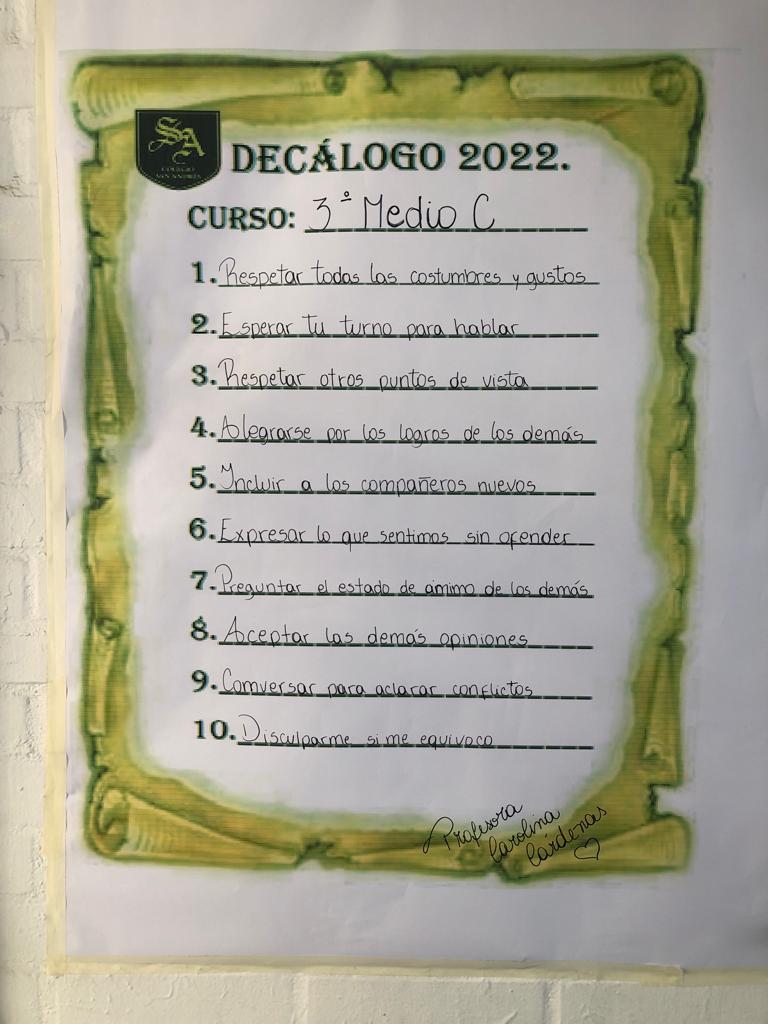 SA
COLEGIO
SAN ANDRÉS
DECÁLOGO 2022.
CURSO: 3º Medio C
1. Respetar todas las costumbres y gustos
2. Esperar tu turno para hablar
3. Respetar otros puntos de vista
4. Alegrarse por los logros de los demás
5. Incluir a los compañeros nuevos
6. Expresar lo que sentimos sin ofender
7. Preguntar el estado de animo de los demás
8. Aceptar las demás opiniones
9. Conversar para aclarar conflictos
10. Disculparme si me equivoco
Profesora
Carolina
Cárdenas